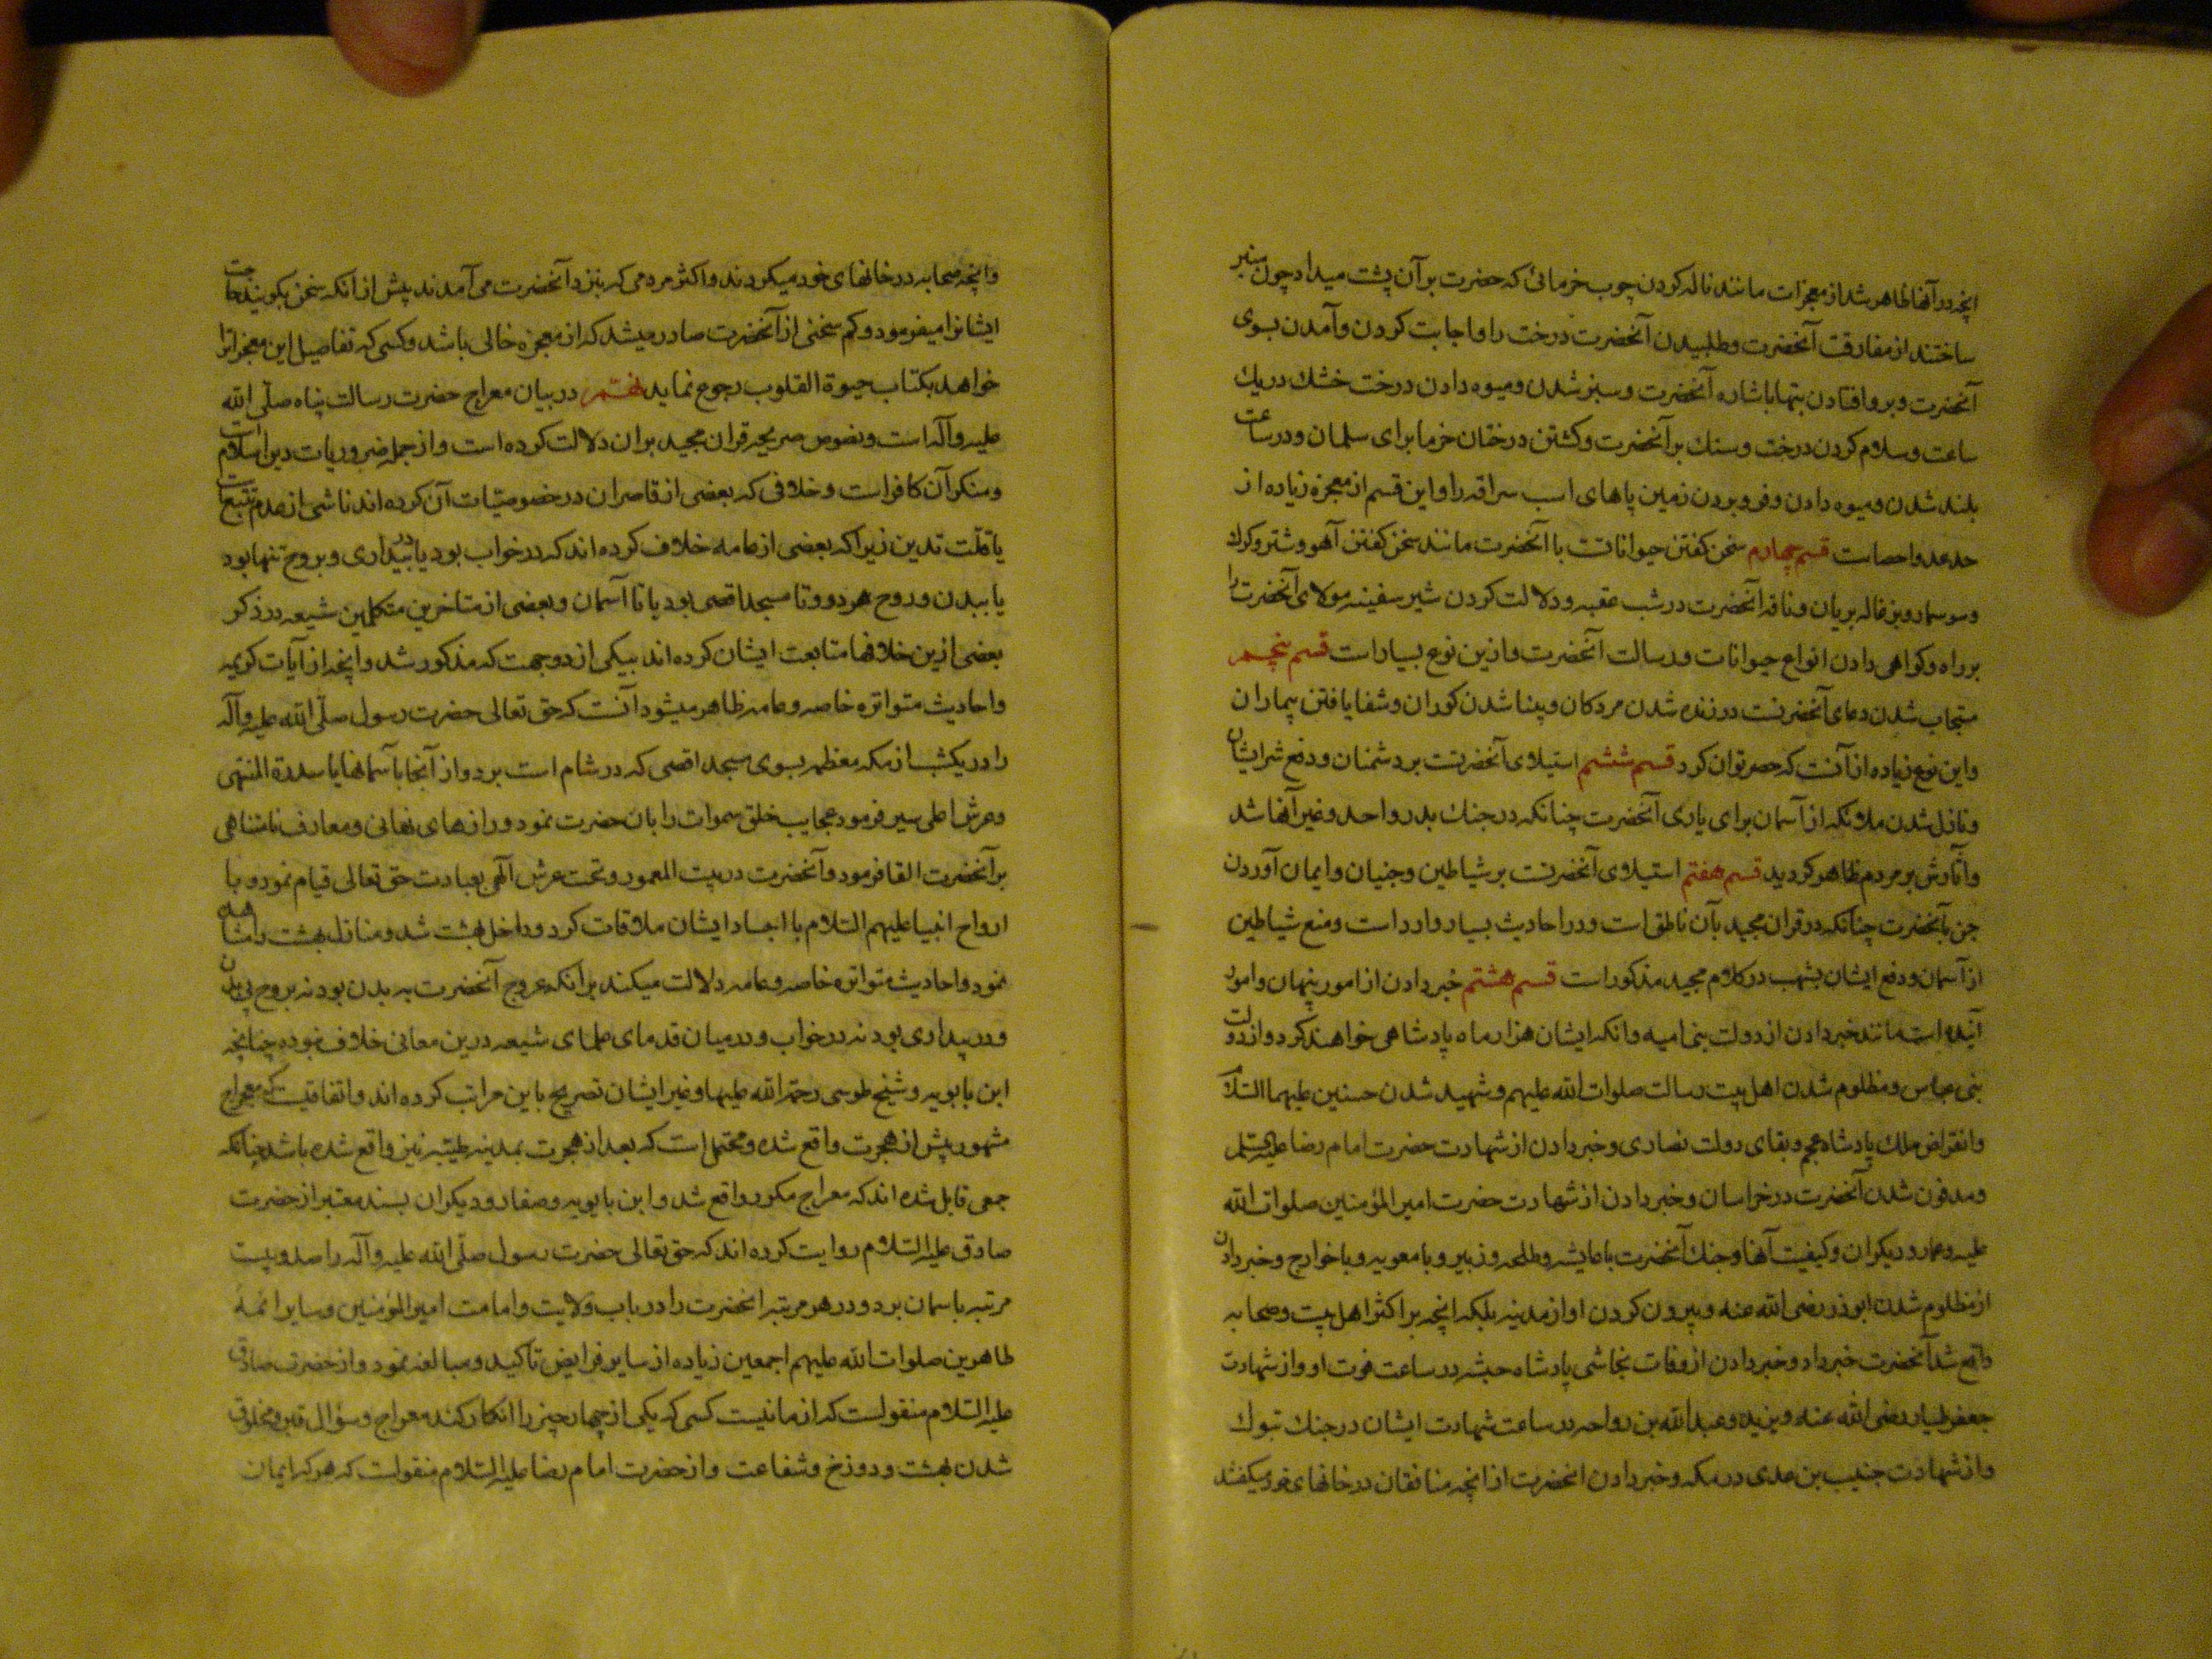 انچه در آنها ظاهر شد از معجزات مانند ناله کردن چوب خرمائی که حضرت بر آن پشت میداد چون منبر
ساختند از مفارقت آنحضرت و طلبیدن آنحضرت درخت را و اجابت کردن و آمدن بسوی
آنحضرت و برو افتادن بتها باشاره آنحضرت و سبز شدن و میوه دادن درخت خشک در یک
ساعت و سلام کردن درخت و سنک بر آنحضرت و کشتن درختان خرما برای سلمان و در ساعت
بلند شدن و میوه دادن و فرو بردن زمین پاهای اسب سراقه را و این قسم از معجزه زیاده از
حد عد و احصاست قسم چهارم سخن کفتن حیواناتست با آنحضرت مانند سخن کفتن آهو و شتر و کرک
و سوسمار و بزغاله بریان و ناقه آنحضرت در شب عقبه و دلالت کردن شیر سفینه مولای آنحضرت را
بر راه و کواهی دادن انواع حیوانات و رسالت آنحضرت و ازین نوع بسیار است قسم پنجم
مستجاب شدن دعای آنحضرتست در زنده شدن مردکان و بینا شدن کوران و شفا یافتن بیماران
و این نوع زیاده از آنست که حصر توان کرد قسم ششم استیلای آنحضرتست بر دشمنان و دفع شر ایشان
و نازل شدن ملائکه از آسمان برای یاری آنحضرت چنانکه در جنک بدر و احد و غیر آنها شد
و آثارش بر مردم ظاهر کردید قسم هفتم استیلای آنحضرتست بر شیاطین و جنیان و ایمان آوردن
جن بآنحضرت چنانکه در قران مجید بآن ناطق است و در احادیث بسیار وارد است و منع شیاطین
از آسمان و دفع ایشان بشهب در کلام مجید مذکور است قسم هشتم خبر دادن از امور پنهان و امور
آینده است مانند خبر دادن از دولت بنی امیه و انکه ایشان هزار ماه پادشاهی خواهند کرد و از دولت
بنی عباس و مظلوم شدن اهل بیت رسالت صلوات الله علیهم و شهید شدن حسنین علیهما السلام
و انقراض ملک پادشاه عجم و بقای دولت نصاری و خبر دادن از شهادت حضرت امام رضا علیه
و مدفون شدن آنحضرت در خراسان و خبر دادن از شهادت حضرت امیر المؤمنین صلوات الله
علیه و عمار و دیکران و کیفیت آنها و جنک آنحضرت با عایشه و طلحه و زبیر و با معویه و با خوارج و خبر دادن
از مظلوم شدن ابوذر رضی الله عنه و بیرون کردن او از مدینه بلکه انچه بر اکثر اهل بیت و صحابه
واقع شد آنحضرت خبر داد و خبر دادن از وفات نجاشی پادشاه حبشه در ساعت فوت او و از شهادت
جعفر طیار رضی الله عنه و زید و عبدالله بن رواحه در ساعت شهادت ایشان در جنک تبوک
و از شهادت بن عدی در مکه و خبر دادن انحضرت از انچه منافقان در خانهای خود میکفتند
و انچه صحابه در خانهای خود میکردند و اکثر مردمی که بنزد آنحضرت می آمدند پیش از انکه سخن بکویند حاجت
ایشانرا میفرمود و کم سخنی از آنحضرت صادر میشد که از معجزه خالی باشد و کسی که تفاصیل این معجزاترا
خواهد بکتاب حیوة القلوب رجوع نماید هفتم در بیان معراج حضرت رسالت پناه صلّی الله
علیه و آله است و نصوص صریحه قران مجید بران دلالت کرده است و از جمله ضروریات دین اسلام است
و منکر آن کافر است و خلافی که بعضی از قاصران در خصوصیّات آن کرده اند ناشی از عدم تتبع است
یا قلّت تدین زیرا که بعضی از عامه خلاف کرده اند که در خواب بود یا در بیداری و بروح تنها بود
یا ببدن و روح هر دو و تا مسجد اقصی بود یا تا آسمان و بعضی از متاخرین متکلمین شیعه در ذکر
بعضی ازین خلافها متابعت ایشان کرده اند بیکی از دو جهت که مذکور شد و انچه از آیات کریمه
و احادیث متواتره خاصه و عامه ظاهر میشود آنست که حق تعالی حضرت رسول صلّی الله علیه و آله
را در یکشب از مکه معظمه بسوی مسجد اقصی که در شام است برد و از آنجا بآسمانها یا سدرة المنتهی
و عرش اعلی سیر فرمود و عجایب خلق سموات را بان حضرت نمود و رازهای نهانی و معارف نامتناهی
بر آنحضرت القا فرمود و آنحضرت در بیت المعمور و تحت عرش الٓهی بعبادت حق تعالی قیام نمود و با
ارواح انبیا علیهم السلام با اجساد ایشان ملاقات کرد و داخل بهشت شد و منازل بهشت را مشاهده
نمود و احادیث متواتره خاصه و عامه دلالت میکند بر انکه عروج آنحضرت به بدن بود نه بروح بی بدن
و در بیداری بود نه در خواب و در میان قدمای علمای شیعه درین معانی خلاف نبوده چنانچه
ابن بابویه و شیخ طوسی رحمة الله علیهما و غیر ایشان تصریح باین مراتب کرده اند و اتفاقیست که معراج
مشهور پیش از هجرت واقع شده و محتمل است که بعد از هجرت بمدینه طیّبه نیز واقع شده باشد چنانکه
جمعی قابل شده اند که معراج مکرر واقع شد و ابن بابویه و صفار و دیکران بسند معتبر از حضرت
صادق علیه السّلام روایت کرده اند که حق تعالی حضرت رسول صلّی الله علیه و آله را صد و بیست
مرتبه باسمان برد و در هر مرتبه انحضرت را در باب ولایت و امامت امیر المؤمنین و سایر ائمه
طاهرین صلوات الله علیهم اجمعین زیاده از سایر فرایض تاکید و مبالغه نمود و از حضرت صادق
علیه السّلام منقولست که از ما نیست کسی که یکی از چهار چیز را انکار کند معراج و سؤال قبر و مخلوق
شدن بهشت و دوزخ و شفاعت و از حضرت امام رضا علیه السّلام منقولست که هر که ایمان